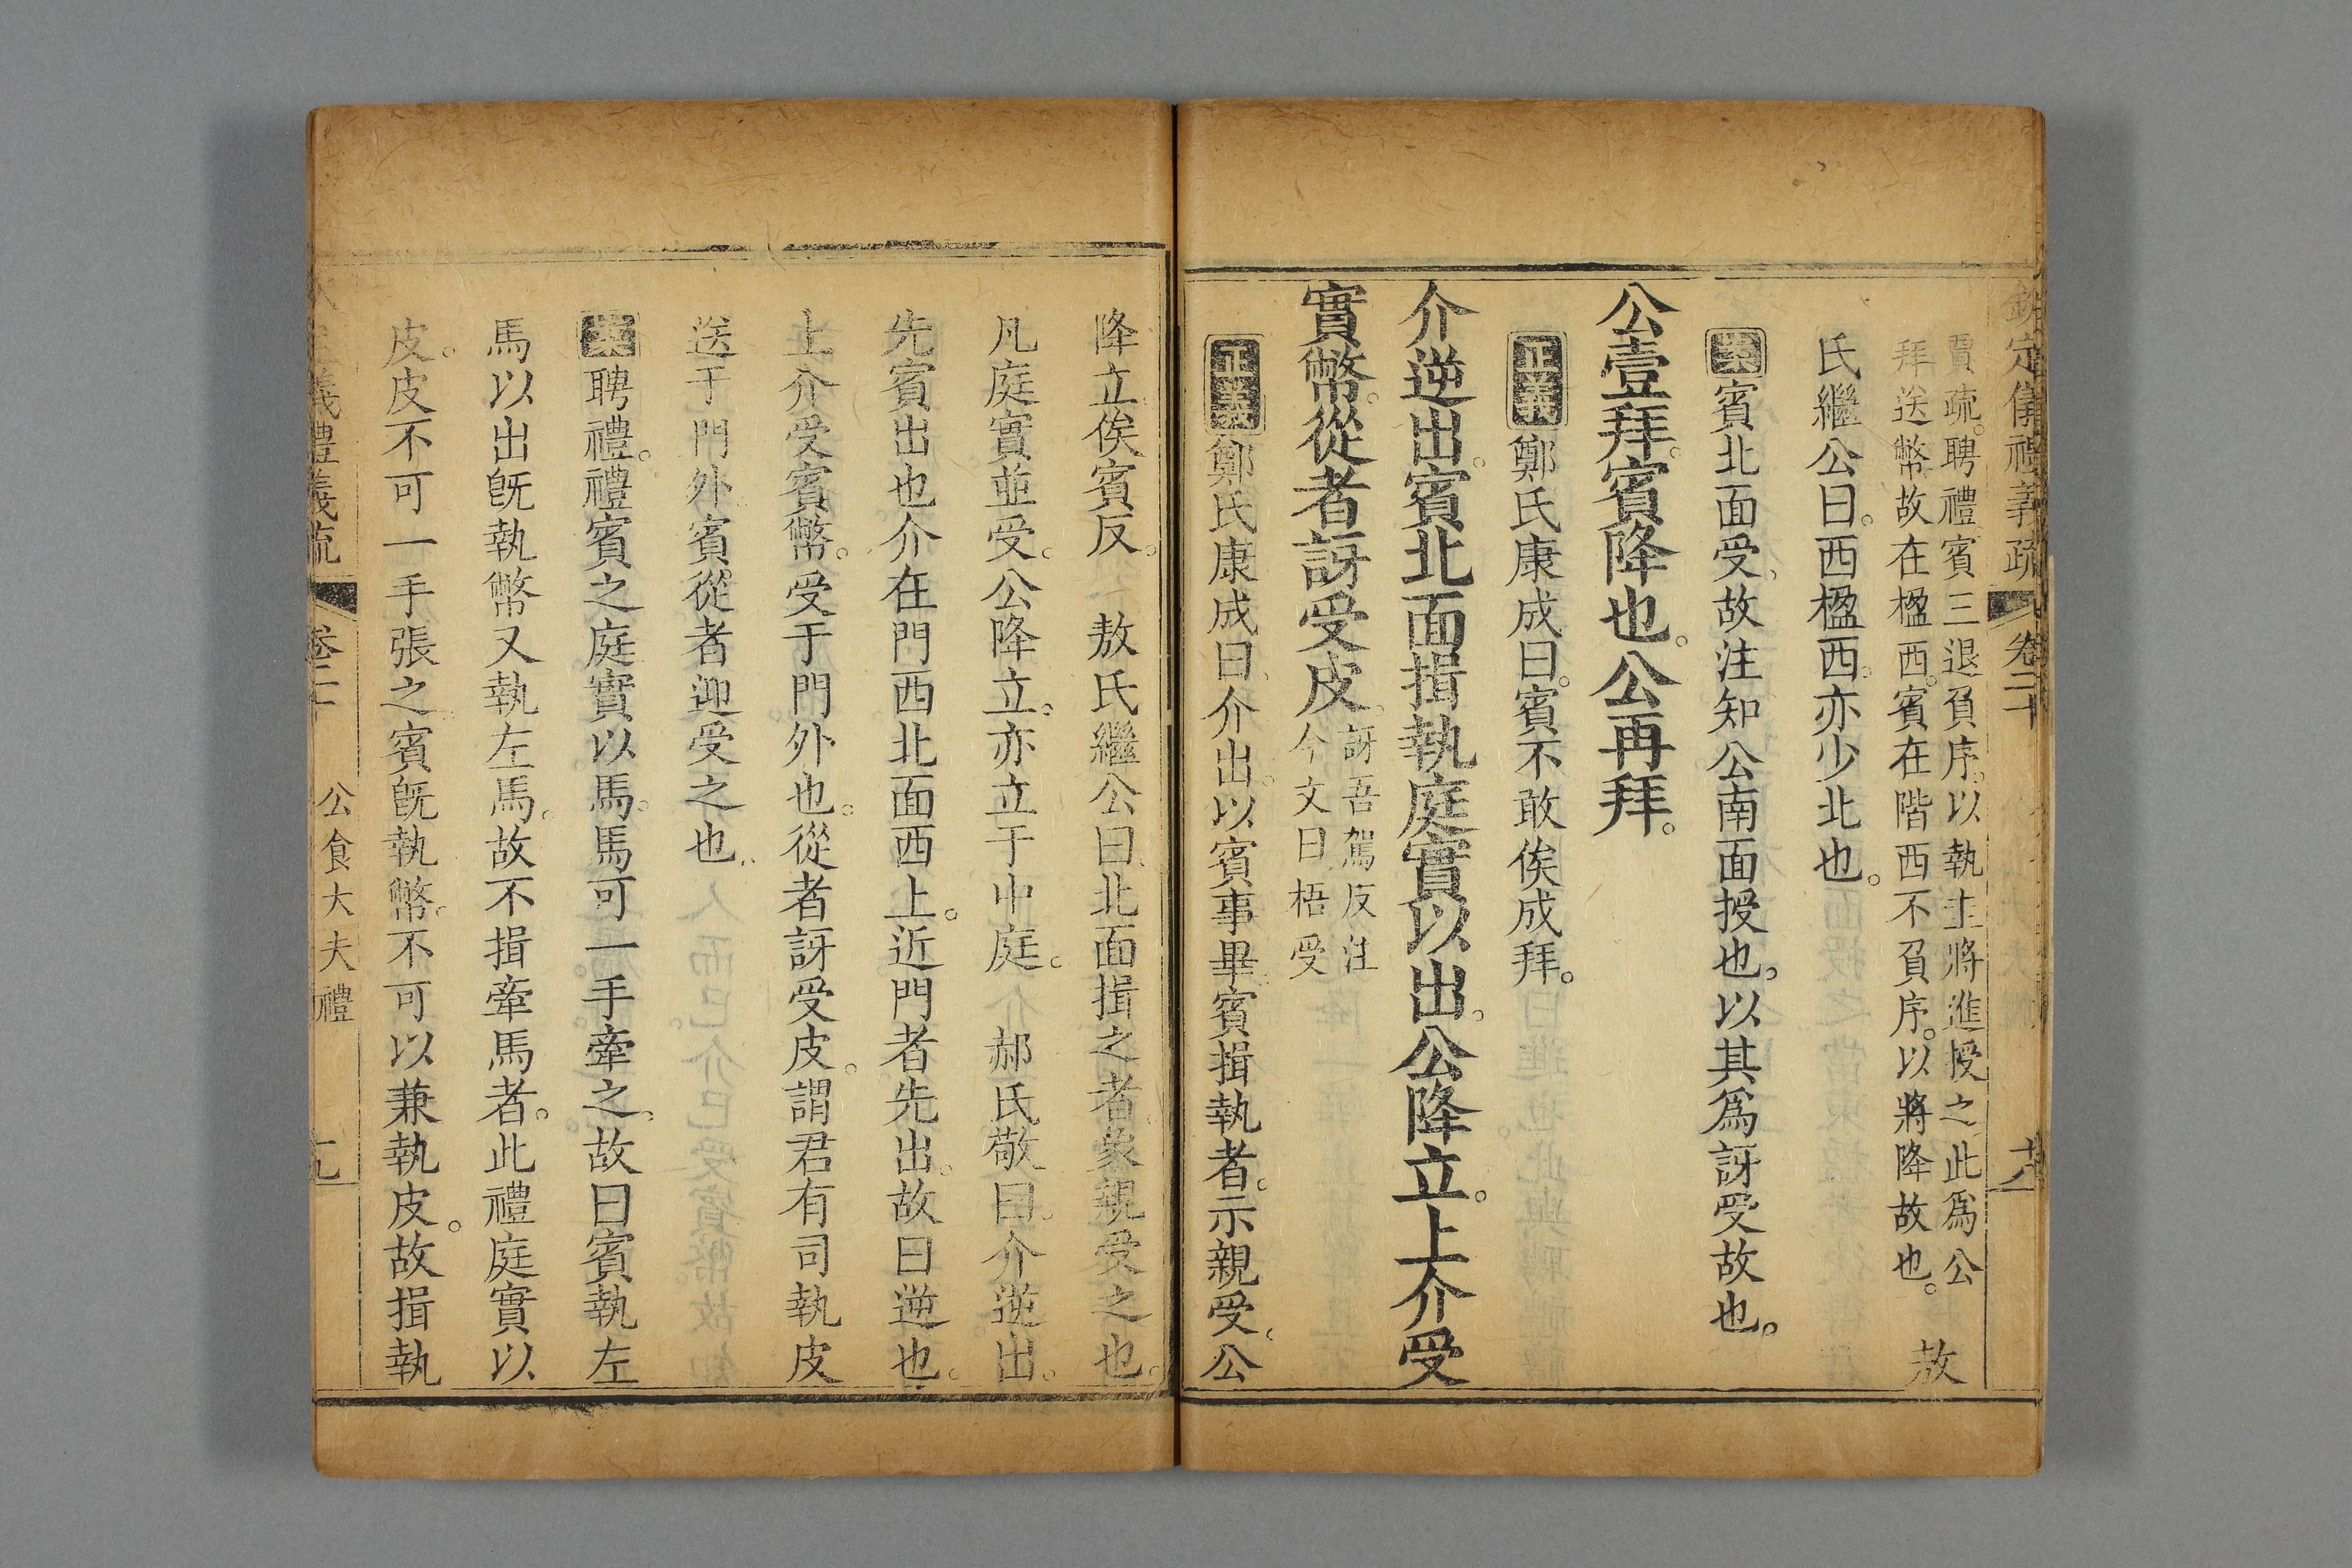 欽定儀禮義疏 卷二十
賈疏。聘禮。賓三退負序。以執圭將進授之此爲公
拜送幣故在楹西。賓在階西不負序。以將降故也。 敖
氏繼公曰。西楹西。亦少北也。
案賓北面受。故注知公南面授也。以其爲訝受故也。
公壹拜。賓降也。公再拜。
正義鄭氏康成曰。賓不敢俟成拜。
介逆出。賓北面揖執庭實以出。公降立。上介受
實幣。從者訝受皮。訝吾駕反注
今文曰梧受
正義鄭氏康成曰。介出。以賓事畢。賓揖執者。示親受。公
降立俟賓反。 敖氏繼公曰。北面揖之者。象親受之也。
凡庭實並受。公降立。亦立于中庭。 郝氏敬曰。介逆出。
先賓出也介在門西北面西上。近門者先出。故曰逆也。
上介受賓幣。受于門外也。從者訝受皮。謂君有司執皮
送于門外。賓從者迎受之也。
案聘禮。禮賓之庭實以馬。馬可一手牽之。故曰賓執左
馬以出旣執幣又執左馬。故不揖牽馬者。此禮庭實以
皮。皮不可一手張之賓旣執幣。不可以兼執皮。故揖執
義禮義疏 卷二十 公食大夫禮